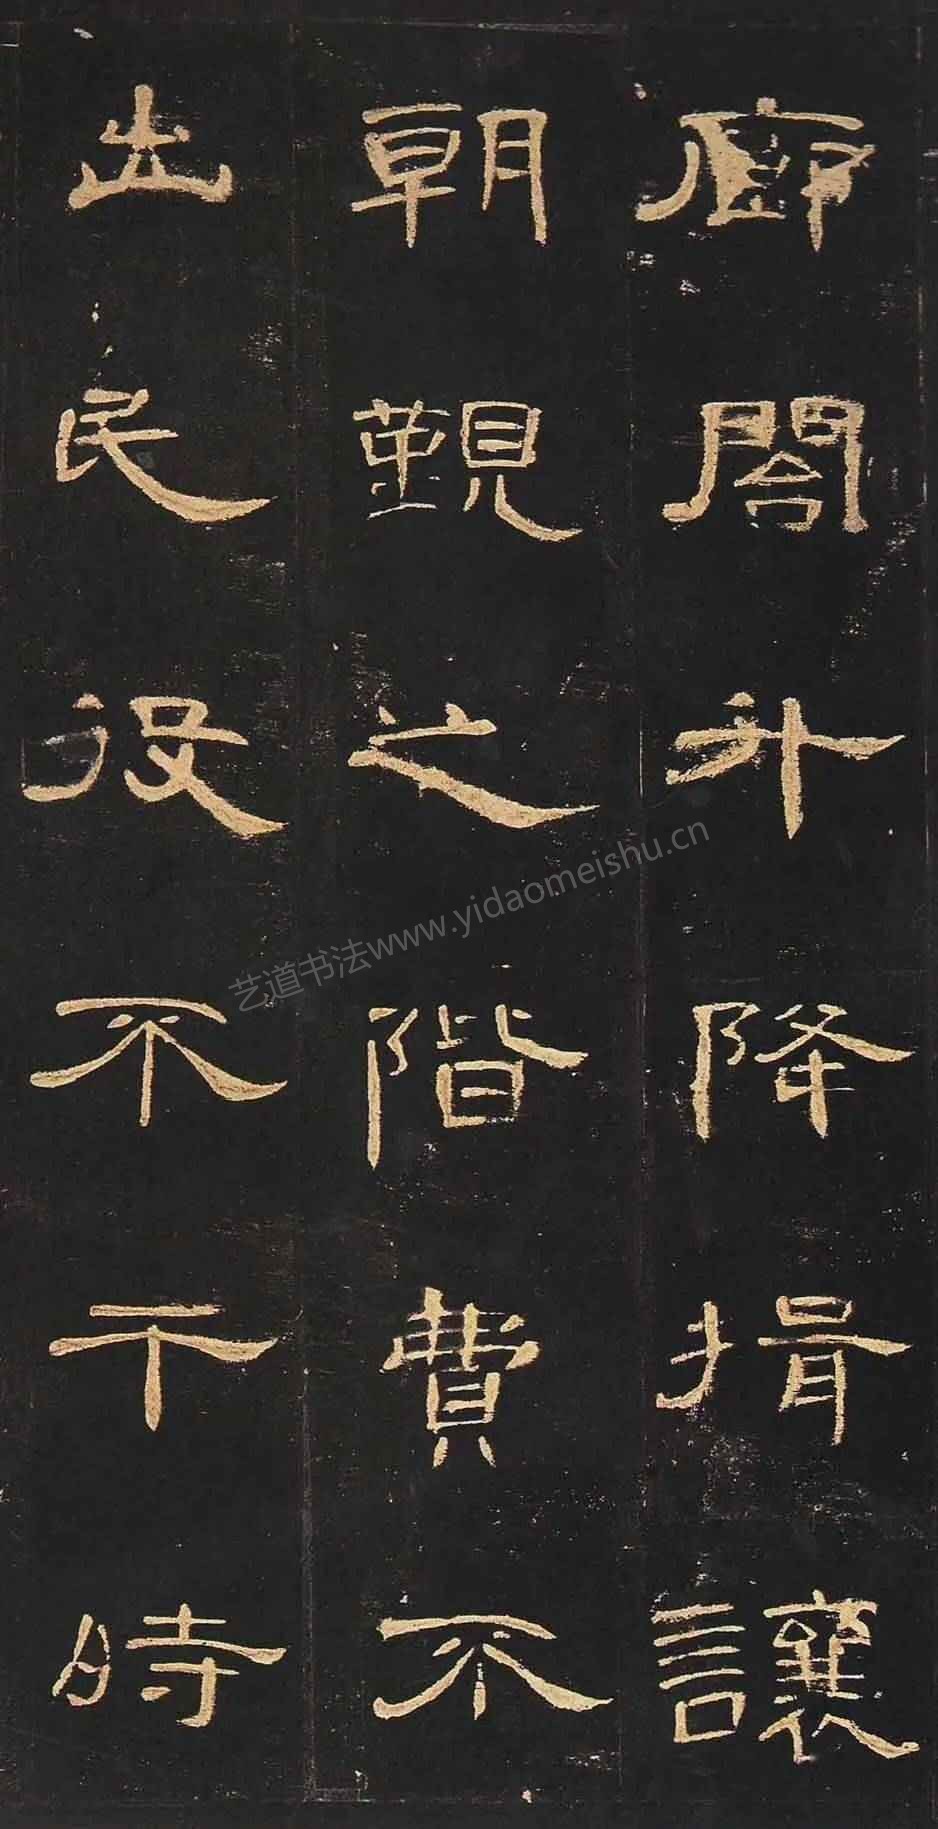 廊閣升降揖讓
朝覲之階費不
出民役不干時
艺道书法www.yidaomeishu.cn